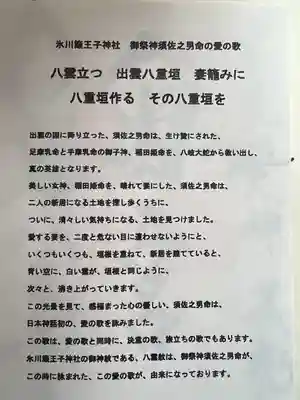 氷川龍王子神社　御祭神須佐之男命の愛の歌
八雲立つ　出雲八重垣　妻籠みに
八重垣作る　その八重垣を
出雲の国に降り立った、須佐之男命は、生け贄にされた、
足摩乳命と手摩乳命の御子神、稲田姫命を、八岐大蛇から救い出し、
真の英雄となります。
美しい女神、稲田姫命を、晴れて妻にした、須佐之男命は、
二人の新居になる土地を捜し歩くうちに、
ついに、清々しい気持ちになる、土地を見つけました。
愛する妻を、二度と危ない目に遭わせないようにと、
いくつもいくつも、垣根を重ねて、新居を建てていると、
青い空に、白い雲が、垣根と同じように、
次々と、沸き上がっていきます。
この光景を見て、感極まった心の優しい、須佐之男命は、
日本神話初の、愛の歌を詠みました。
この歌は、愛の歌と同時に、決意の歌、旅立ちの歌でもあります。
氷川龍王子神社の御神紋である、八重紋は、御祭神須佐之男命が、
この時に詠まれた、この愛の歌が、由来になっております。